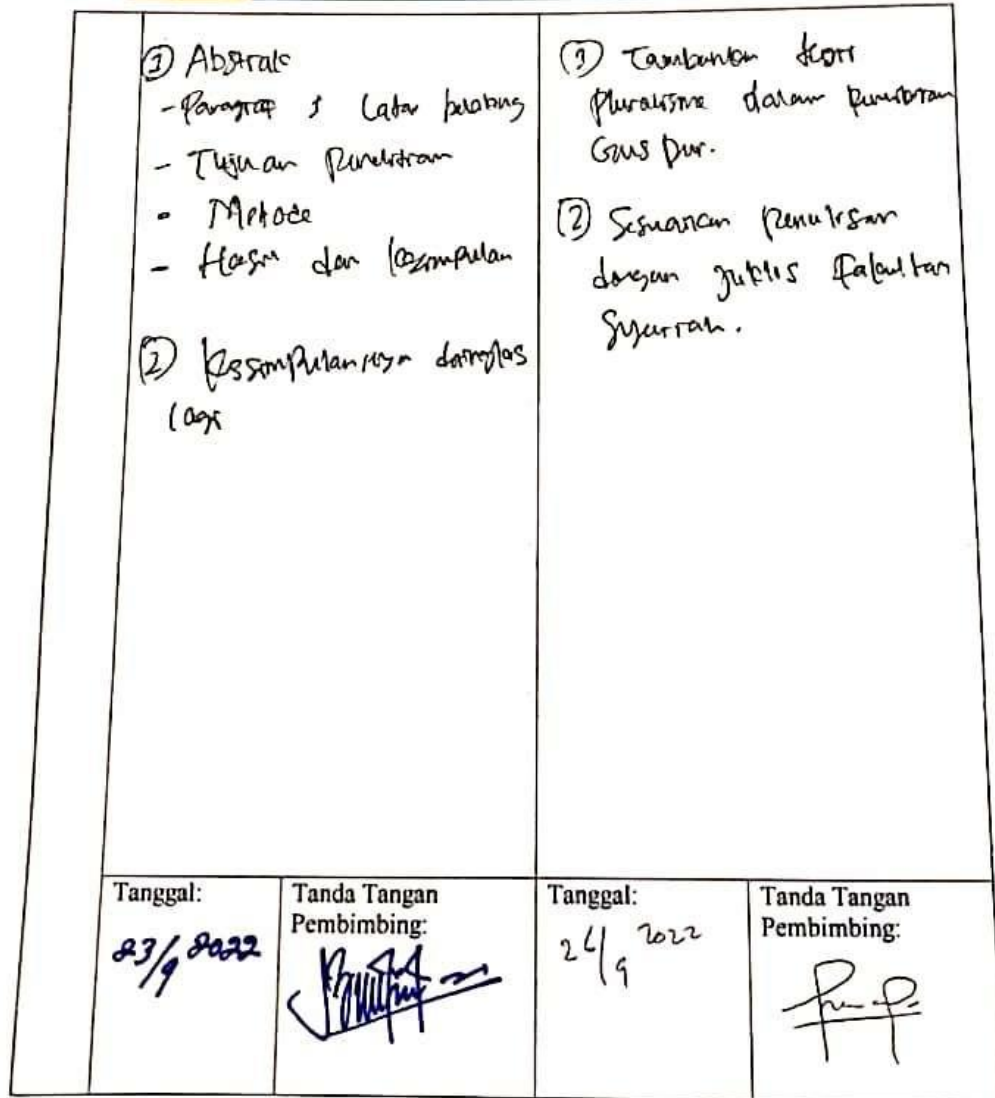 ① Abstrak
- Paragrap 1 Latar belakang
- Tujuan Penelitian
- Metode
- Hasil dan kesimpulan
② Kesimpulannya diringkas
lagi
① Tambahkan teori
Pluralisme dalam pemikiran
Gus Dur.
② Sesuaikan penulisan
dengan juknis Fakultas
Syariah.
Tanggal:
23/9 2022
Tanda Tangan
Pembimbing:
Tanggal:
26/9 2022
Tanda Tangan
Pembimbing: